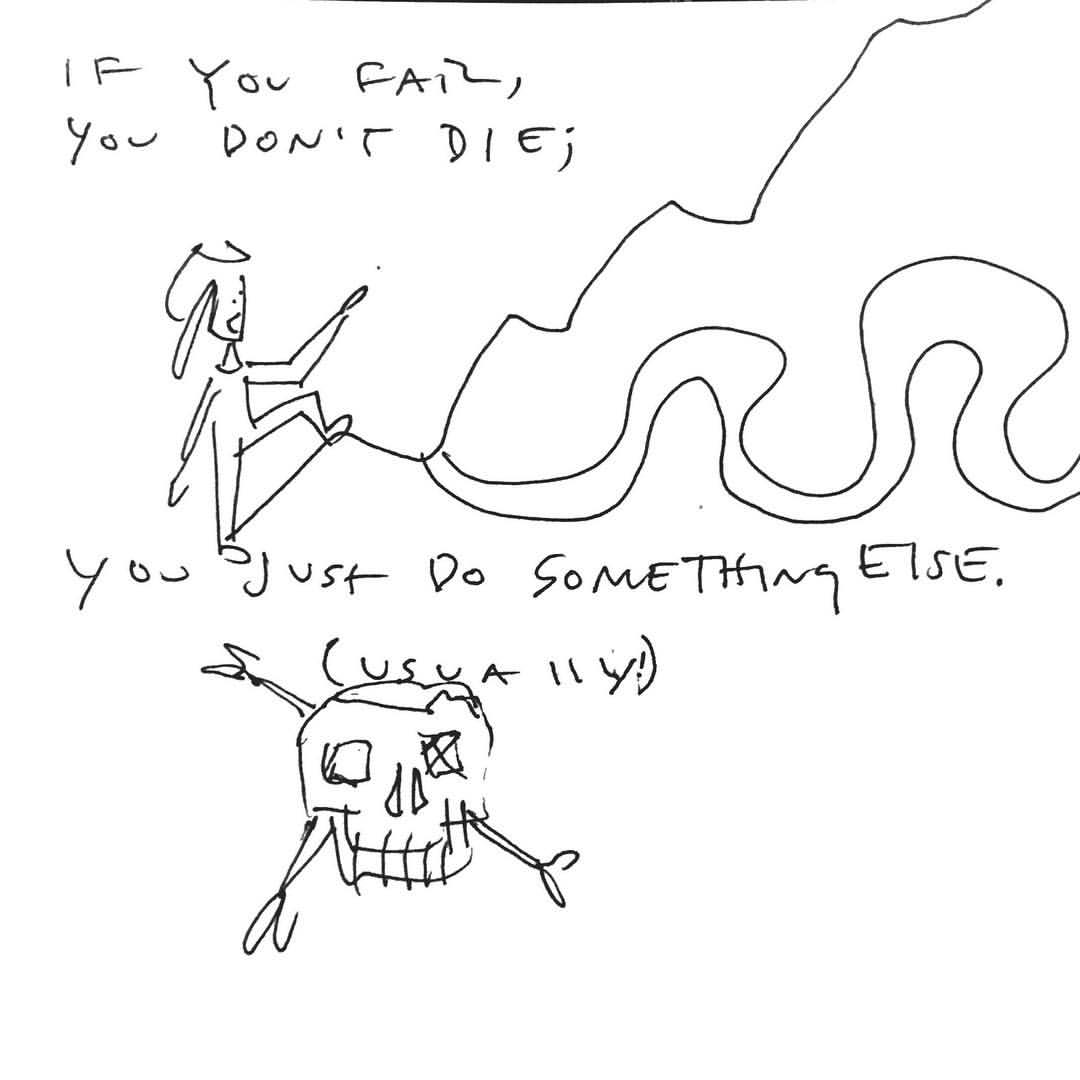 IF YOU FAIL,
YOU DON'T DIE;
YOU JUST DO SOMETHING ELSE.
(USUALLY!)